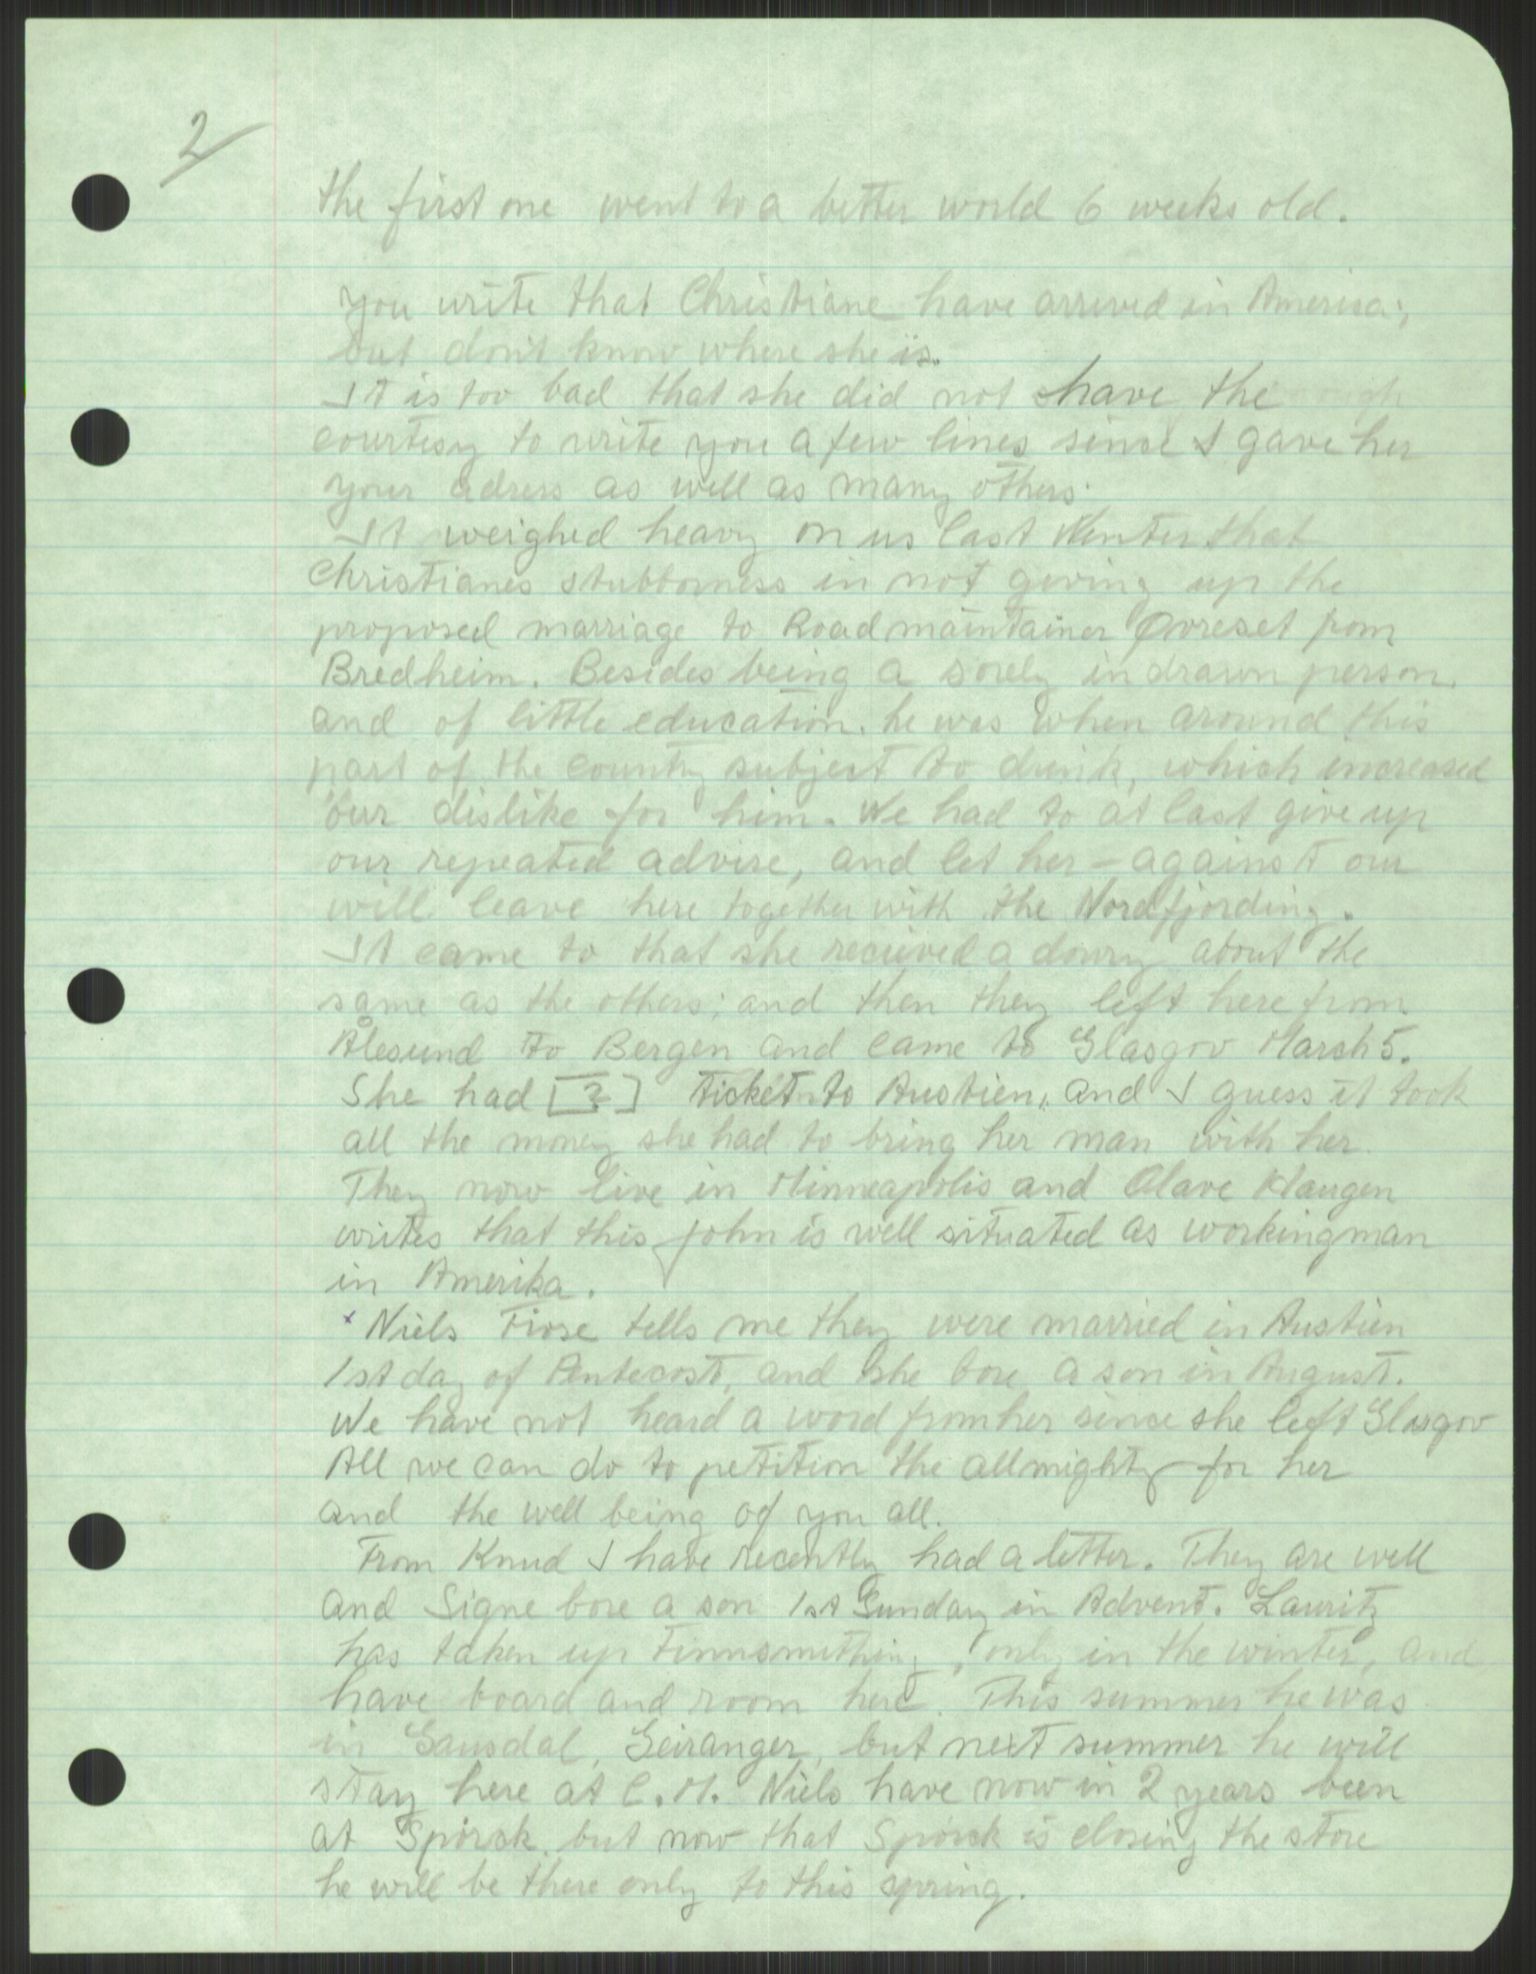 2
the first one went to a better world 6 weeks old.
You write that Christiane have arrived in America;
but don't know where she is.
It is too bad that she did not have the
courtesy to write you a few lines since I gave her
your adress as well as many others.
It weighed heavy on us last Winter that
Christianes stubborness in not giving up the
proposed marriage to Roadmaintainer Øvreset from
Bredheim. Besides being a sorely indrawn person.
and of little education. he was when around this
part of the country subject to drink, which increased
our dislike for him. We had to at last give up
our repeated advise, and let her – against our
will leave here together with the Nordfjording.
It came to that she recieved a dowry about the
same as the others; and then they left here from
Ålesund to Bergen and came to Glasgov March 5.
She had [?] ticket to Austien, and I guess it took
all the money she had to bring her man with her.
They now live in Minneapolis and Olave Klaugen
writes that this John is well situated as workingman
in Amerika.
x Niels Fiose tells me they were married in Austien
1st day of Pentecost, and she bore a son in August.
We have not heard a word from her since she left Glasgov
All we can do to petition the allmighty for her
and the well being of you all.
From Knud I have recently had a letter. They are well
and Signe bore a son 1st Sunday in Advent. Lauritz
has taken up Tinnsmithing, only in the winter, and
have board and room here. This summer he was
in Gausdal, Geiranger, but next summer he will
stay here at C. M. Niels have now in 2 years been
at Spørck. but now that Spørck is closing the store
he will be there only to this spring.